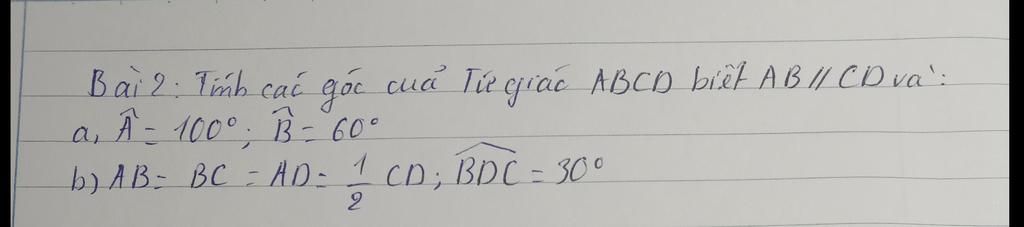 Bài 2: Tính các góc của Tứ giác ABCD biết AB // CD và:
a, Â = 100°; B̂ = 60°
b) AB = BC = AD = 1/2 CD; \widehat{BDC} = 30°